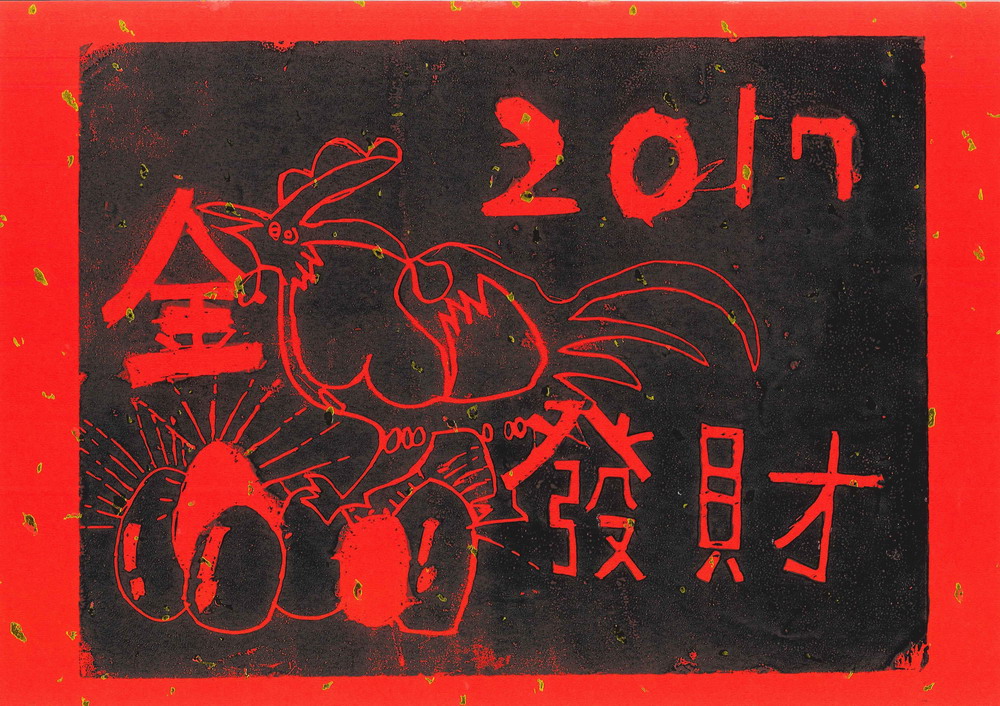 2017
金
發財